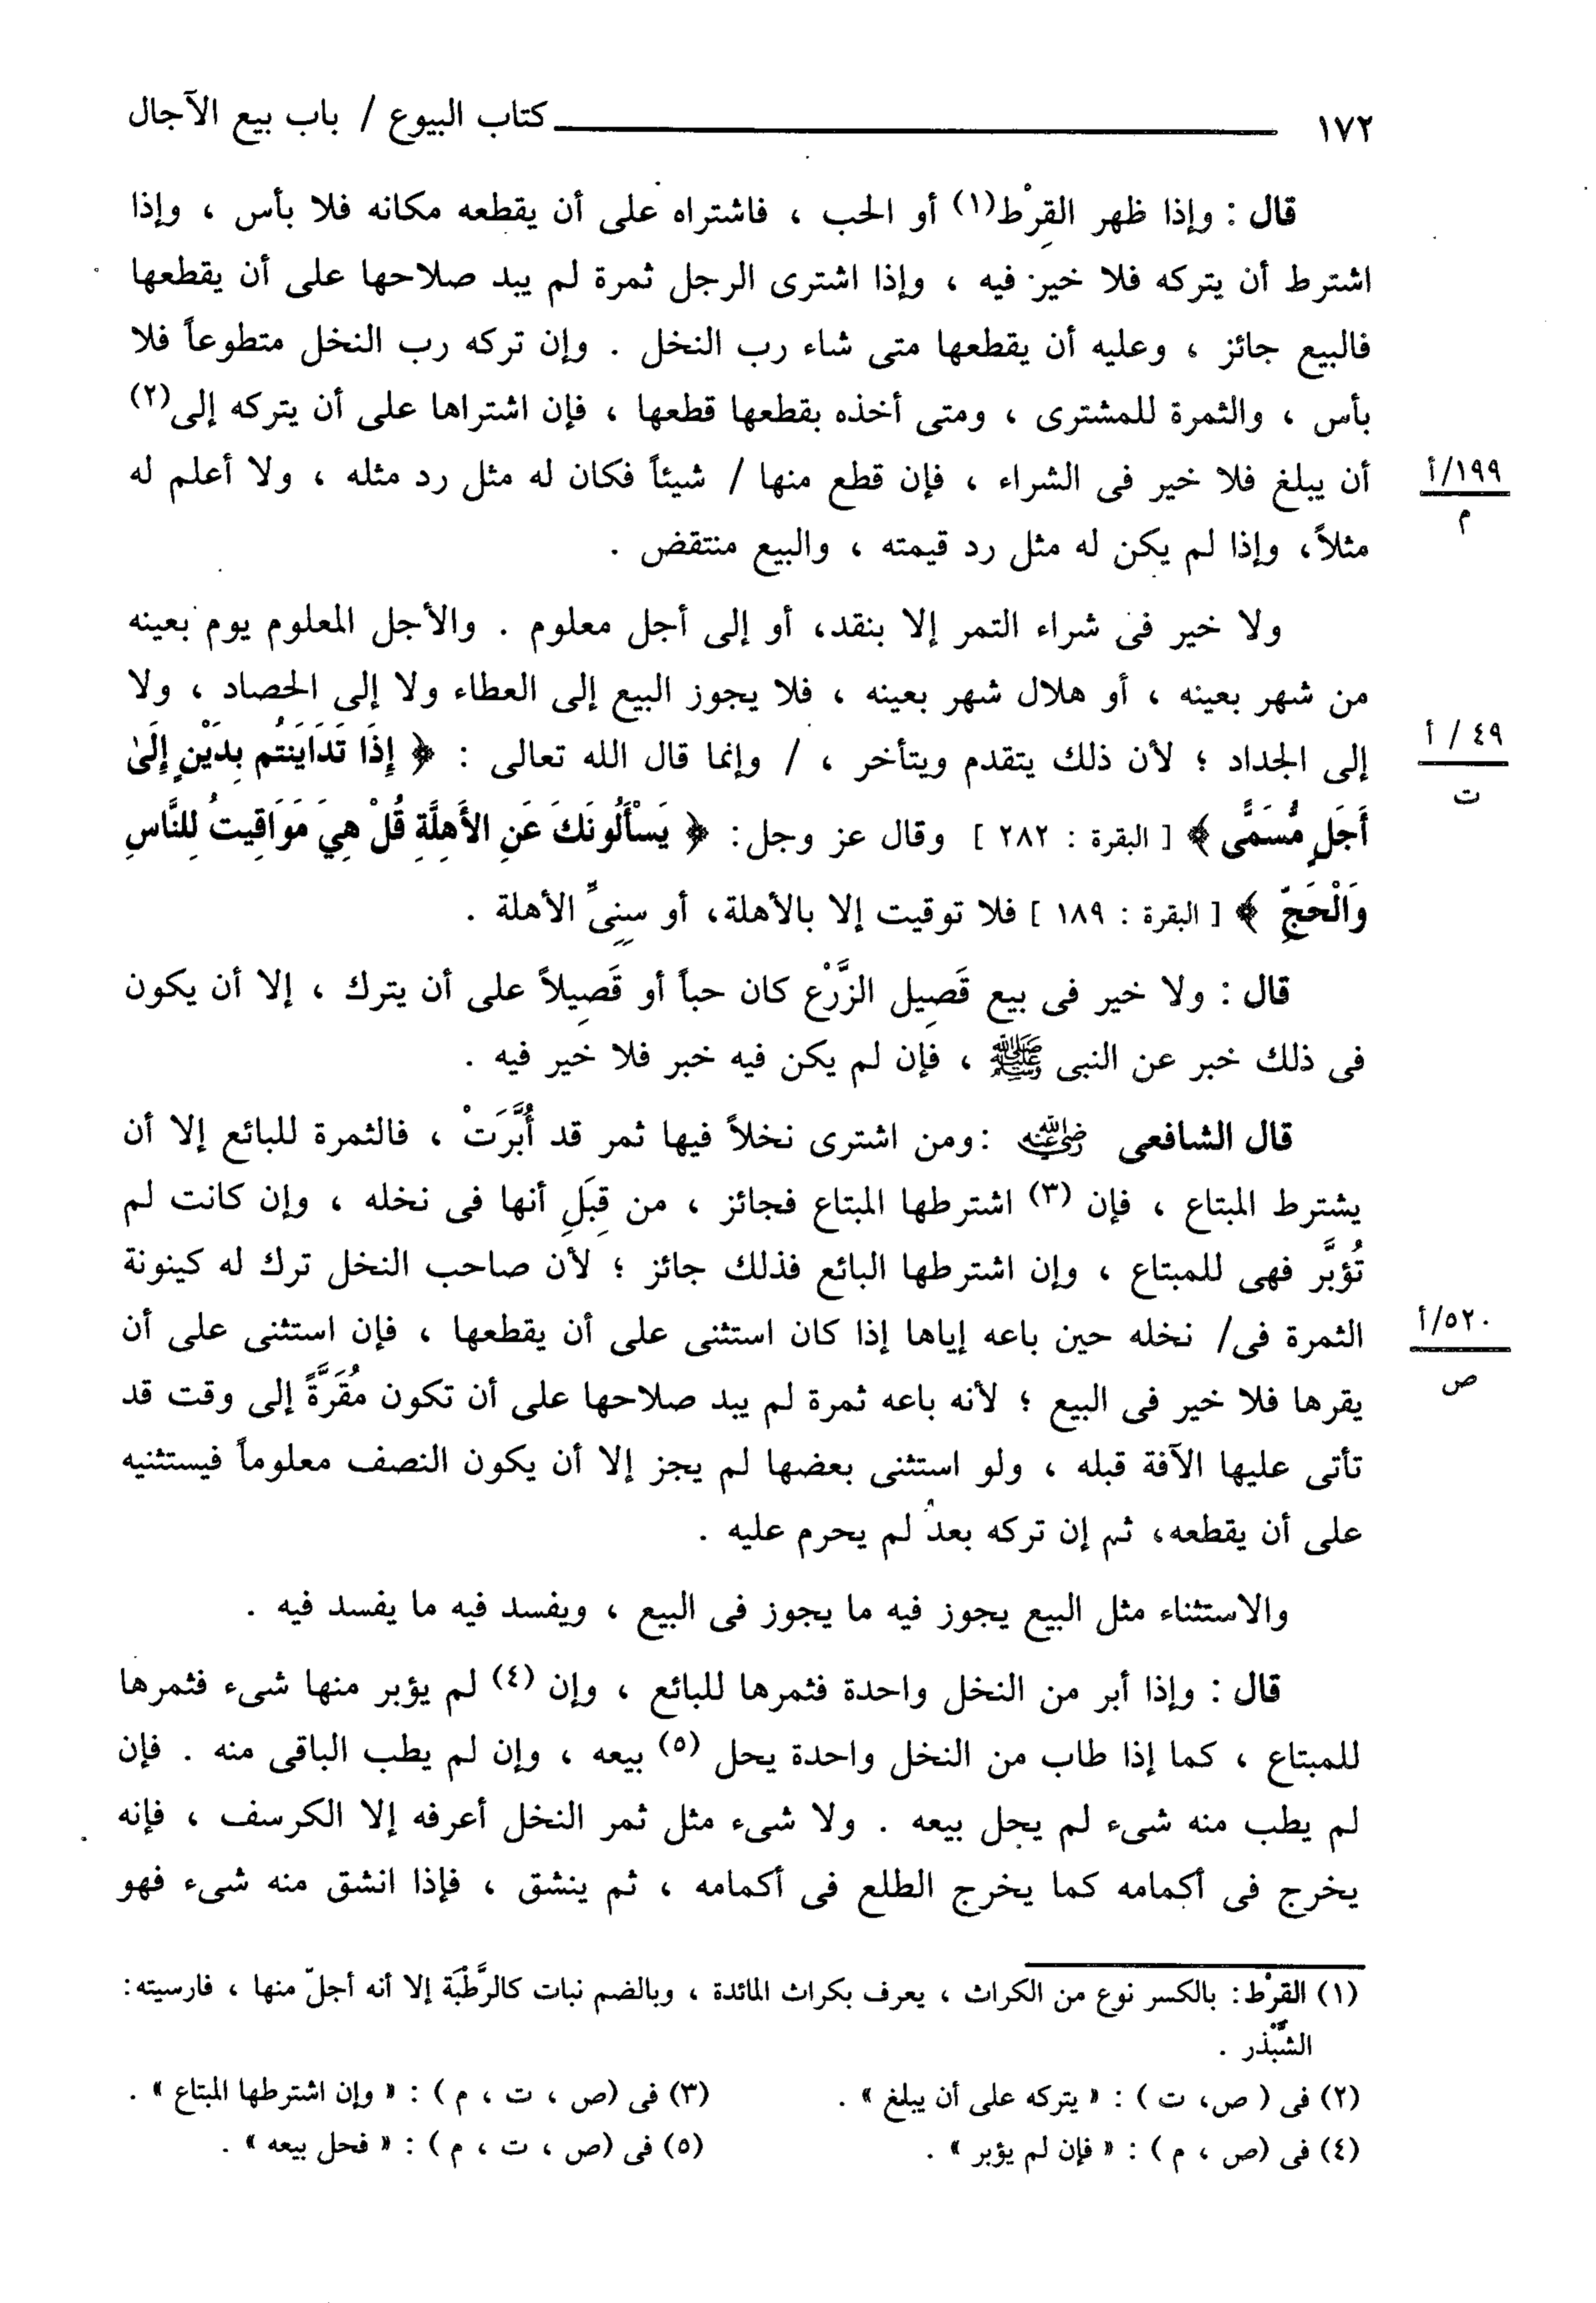 ١٧٢ ـــــــــــــــــــــ كتاب البيوع / باب بيع الآجال
قال : وإذا ظهر القِرْط(١) أو الحب ، فاشتراه على أن يقطعه مكانه فلا بأس ، وإذا
اشترط أن يتركه فلا خير فيه ، وإذا اشترى الرجل ثمرة لم يبد صلاحها على أن يقطعها
فالبيع جائز ، وعليه أن يقطعها متى شاء رب النخل . وإن تركه رب النخل متطوعاً فلا
بأس ، والثمرة للمشترى ، ومتى أخذه بقطعها قطعها ، فإن اشتراها على أن يتركه إلى(٢)
أن يبلغ فلا خير فى الشراء ، فإن قطع منها / شيئاً فكان له مثل رد مثله ، ولا أعلم له
١٩٩/أ
م
مثلاً، وإذا لم يكن له مثل رد قيمته ، والبيع منتقض .
ولا خير فى شراء التمر إلا بنقد، أو إلى أجل معلوم . والأجل المعلوم يوم بعينه
من شهر بعينه ، أو هلال شهر بعينه ، فلا يجوز البيع إلى العطاء ولا إلى الحصاد ، ولا
إلى الجداد ؛ لأن ذلك يتقدم ويتأخر ، / وإنما قال الله تعالى : ﴿ إِذَا تَدَايَنتُم بِدَيْنٍ إِلَىٰ
٤٩ / أ
ت
أَجَلٍ مُّسَمًّى ﴾ [ البقرة : ٢٨٢ ] وقال عز وجل: ﴿ يَسْأَلُونَكَ عَنِ الأَهِلَّةِ قُلْ هِيَ مَوَاقِيتُ لِلنَّاسِ
وَالْحَجِّ ﴾ [ البقرة : ١٨٩ ] فلا توقيت إلا بالأهلة، أو سِنِىِّ الأهلة .
قال : ولا خير فى بيع قَصِيل الزَّرْع كان حباً أو قَصِيلاً على أن يترك ، إلا أن يكون
فى ذلك خبر عن النبى ﷺ ، فإن لم يكن فيه خبر فلا خير فيه .
قال الشافعى رضي الله عنه :ومن اشترى نخلاً فيها ثمر قد أُبِّرَتْ ، فالثمرة للبائع إلا أن
يشترط المبتاع ، فإن (٣) اشترطها المبتاع فجائز ، من قِبَلِ أنها فى نخله ، وإن كانت لم
تُؤبَّر فهى للمبتاع ، وإن اشترطها البائع فذلك جائز ؛ لأن صاحب النخل ترك له كينونة
الثمرة فى/ نخله حين باعه إياها إذا كان استثنى على أن يقطعها ، فإن استثنى على أن
٥٢٠/أ
ص
يقرها فلا خير فى البيع ؛ لأنه باعه ثمرة لم يبد صلاحها على أن تكون مُقَرَّةً إلى وقت قد
تأتى عليها الآفة قبله ، ولو استثنى بعضها لم يجز إلا أن يكون النصف معلوماً فيستثنيه
على أن يقطعه، ثم إن تركه بعدُ لم يحرم عليه .
والاستثناء مثل البيع يجوز فيه ما يجوز فى البيع ، ويفسد فيه ما يفسد فيه .
قال : وإذا أبر من النخل واحدة فثمرها للبائع ، وإن (٤) لم يؤبر منها شىء فثمرها
للمبتاع ، كما إذا طاب من النخل واحدة يحل (٥) بيعه ، وإن لم يطب الباقى منه . فإن
لم يطب منه شىء لم يحل بيعه . ولا شىء مثل ثمر النخل أعرفه إلا الكرسف ، فإنه
يخرج فى أكمامه كما يخرج الطلع فى أكمامه ، ثم ينشق ، فإذا انشق منه شىء فهو
(١) القِرْط: بالكسر نوع من الكراث ، يعرف بكراث المائدة ، وبالضم نبات كالرَّطْبَة إلا أنه أجلّ منها ، فارسيته:
الشَّبْذر .
(٢) فى ( ص، ت ) : « يتركه على أن يبلغ » .
(٣) فى (ص ، ت ، م ) : « وإن اشترطها المبتاع » .
(٤) فى (ص ، م ) : « فإن لم يؤبر » .
(٥) فى (ص ، ت ، م ) : « فحل بيعه » .